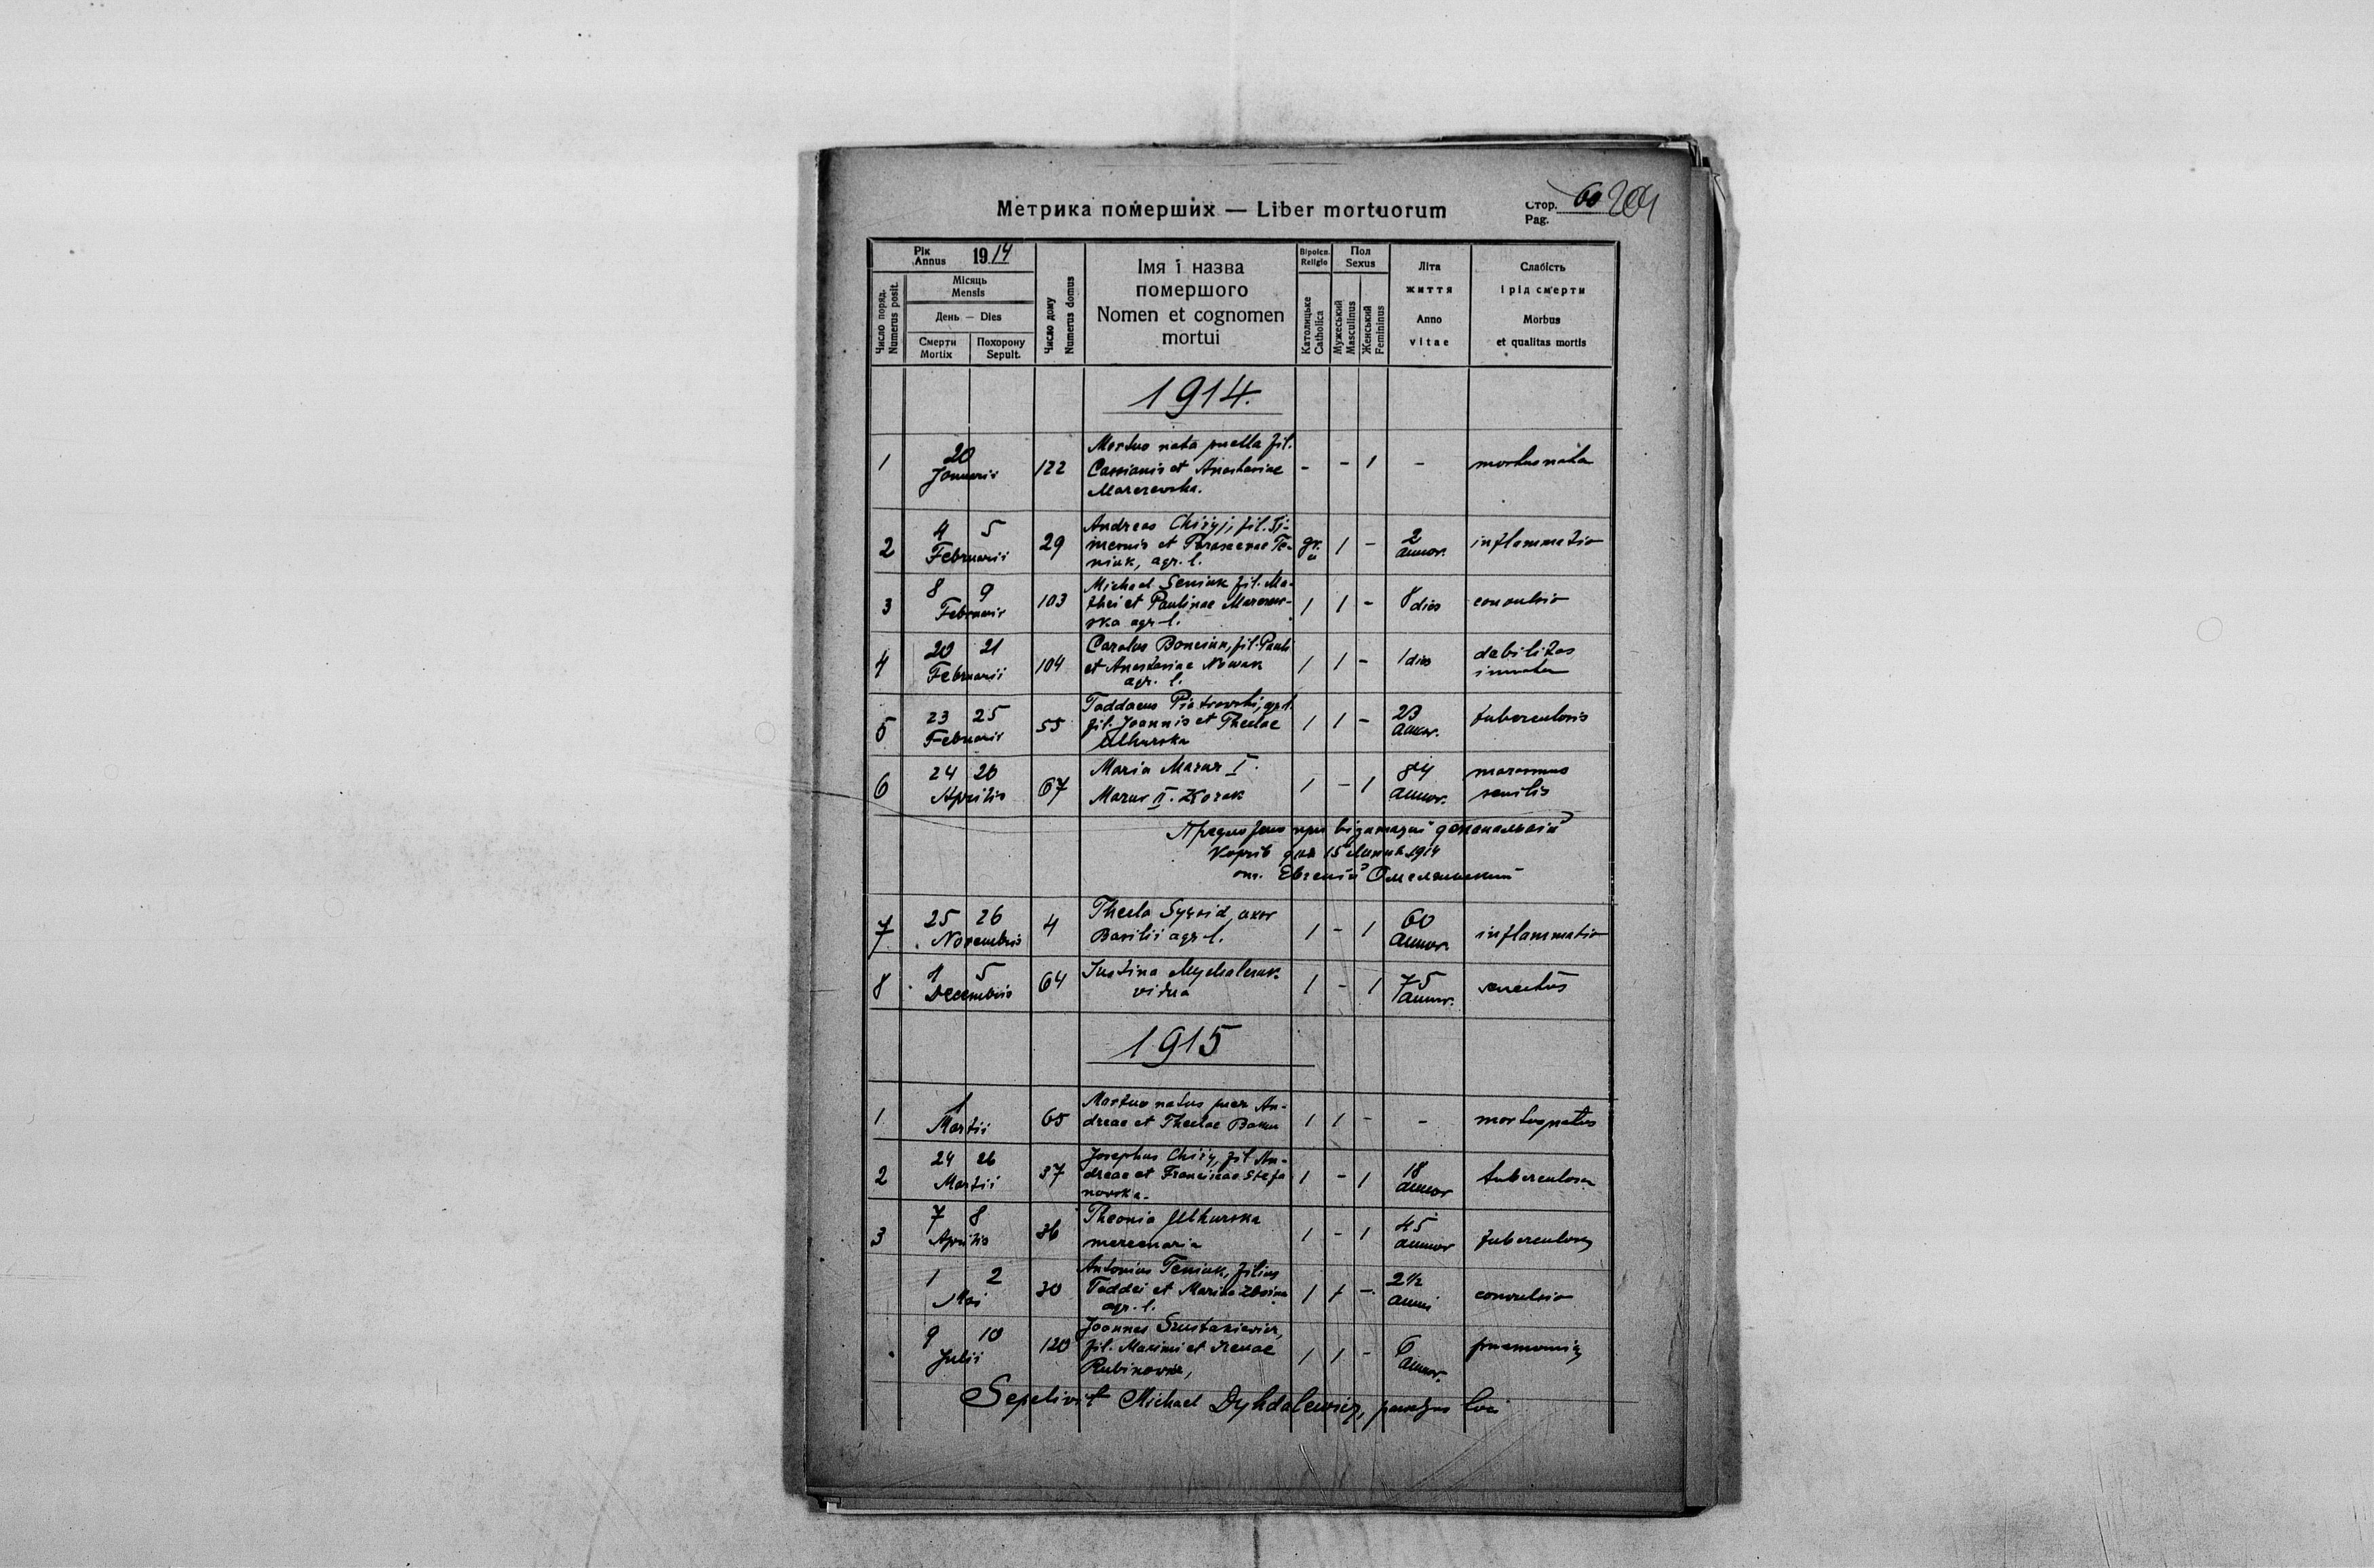 Метрика померших — Liber mortuorum
Стор. Pag. 60 204
Рік Annus 1914
Місяць Mensis
День — Dies
Смерти Mortix
Похорону Sepult.
Число поряд. Numerus posit.
Число дому Numerus domus
Імя і назва
помершого
Nomen et cognomen
mortui
Віроісп. Religio
Католицьке Catholica
Пол Sexus
Мужеський Masculinus
Женський Femininus
Літа
життя
Anno
vitae
Слабість
і рід смерти
Morbus
et qualitas mortis
1914.
1 20 Januarii 122 Mortuo nata puella fil.
Cassianis et Anastasiae
Marezewska. - - 1 - mortuo nata
2 4 5 Februarii 29 Andreas Chiryj, fil. Ti-
meonis et Parascevae Te-
niuk, agr. l. gr. 1 - 2 annor. inflammatio
3 8 9 Februarii 103 Michael Seniuk fil. Ma-
thei et Paulinae
ska agr. l. 1 1 - 8 dies convulsio
4 20 21 Februarii 104 Carolus fil. Pauli
et Anastasiae Nowak
agr. l. 1 1 - 1 dies debilitas
innata
5 23 25 Februarii 55 Taddaeus Piotrovski, agr. l.
fil. Joannis et Theclae
1 1 - 23 annor. tuberculosis
6 24 26 Aprilis 67 Maria Mazur I.
Mazur II. Kozak 1 - 1 84 annor. marasmus
senilis
при візитації деканальній
дня 15 1914
от. Евгеній
7 25 26 Novembris 4 Thecla uxor
Basilii agr. l. 1 - 1 60 annor. inflammatio
8 5 Decembris 64 Justina Mychalczuk
vidua 1 - 1 75 annor. senectus
1915
1 1 Martii 65 Mortuo natus puer An-
dreae et Theclae 1 1 - - mortuo natus
2 24 26 Martii 37 Josephus Chiry, fil. An-
dreae et Franciscae Stefa
novska. 1 - 1 18 annor tuberculosa
3 7 8 Aprilis 36 Theonia
mercenaria 1 - 1 45 annor tuberculosis
1 2 Mai 30 Antonius Teniuk, filius
Taddei et
agr. l. 1 1 - 2 1/2 anni convulsio
9 10 Julii 120 Joannes Szustakiewicz,
fil. Maximi et Irenae
1 1 - 6 annor. pneumonia
Sepelivit Michael Dyhdalewicz, parochus loci